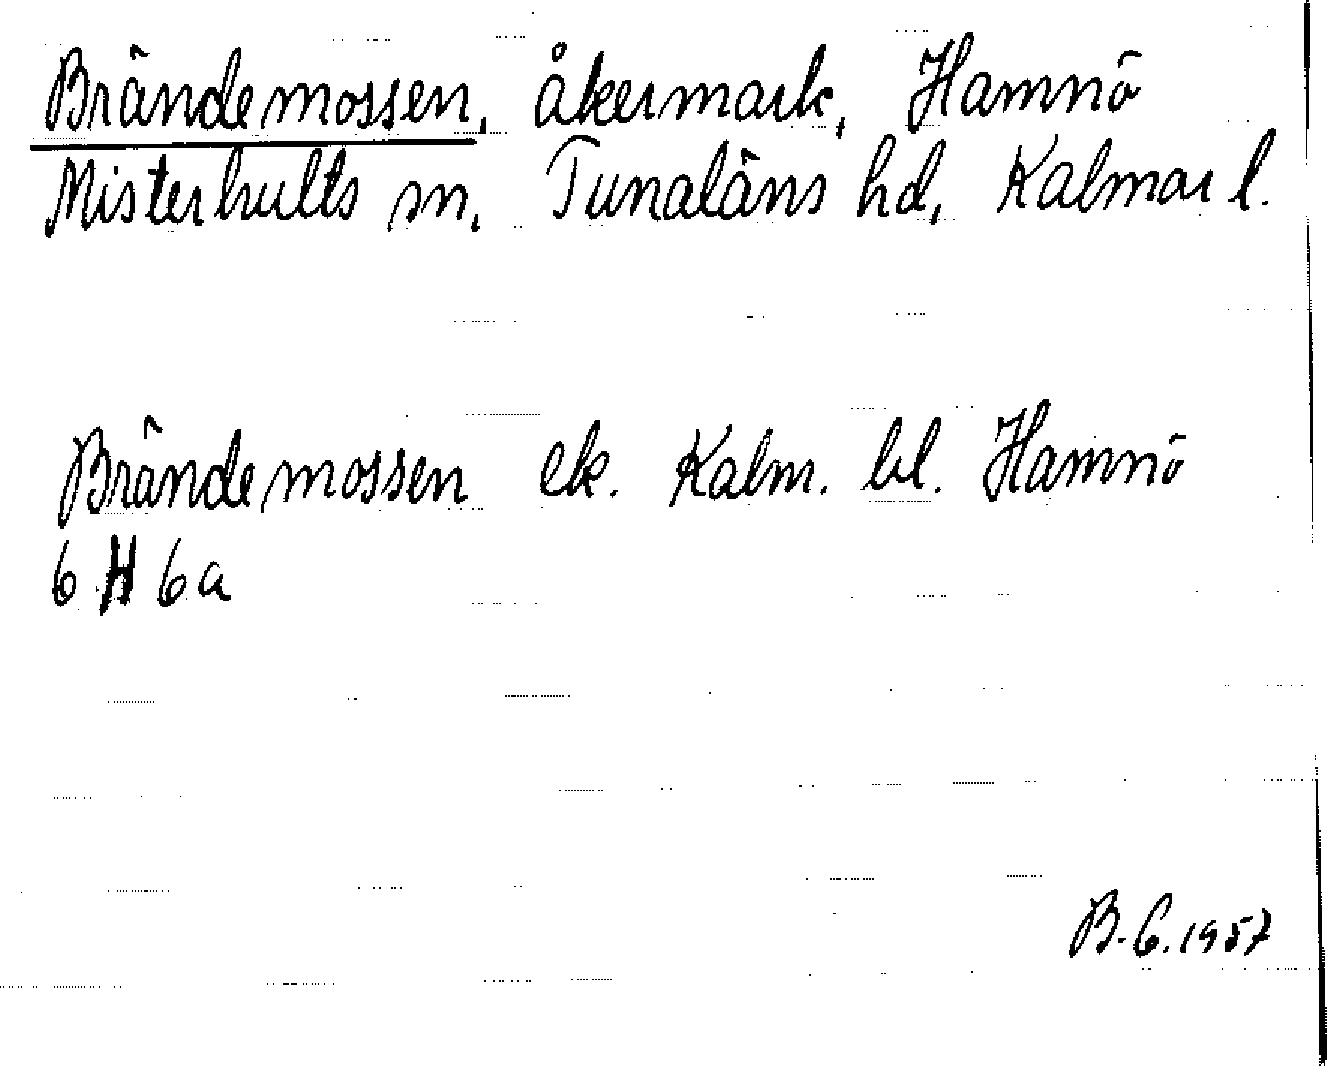 Brändemossen, åkermark, Hamnö
Misterhults sn, Tunaläns hd, Kalmar l.
Brändemossen ek. Kalm. bl. Hamnö
6 H 6a
B.C. 1957